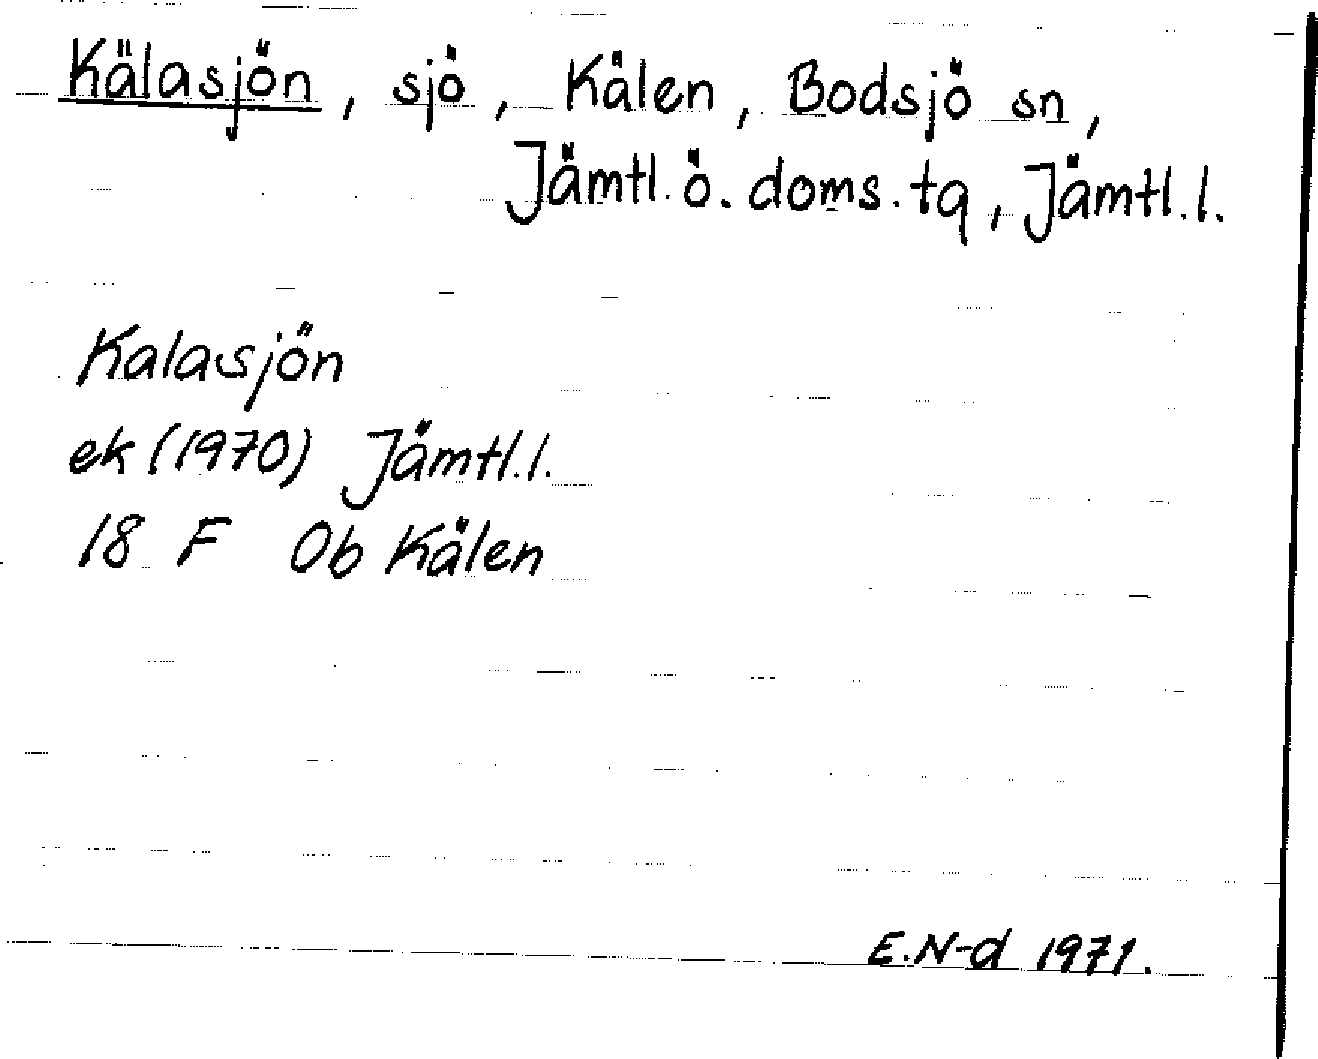 Kälasjön, sjö, Kälen, Bodsjö sn,
Jämtl. ö. doms. tg, Jämtl. l.
Kalasjön
ek (1970) Jämtl. l.
18 F 0b Kälen
E. N-d 1971.